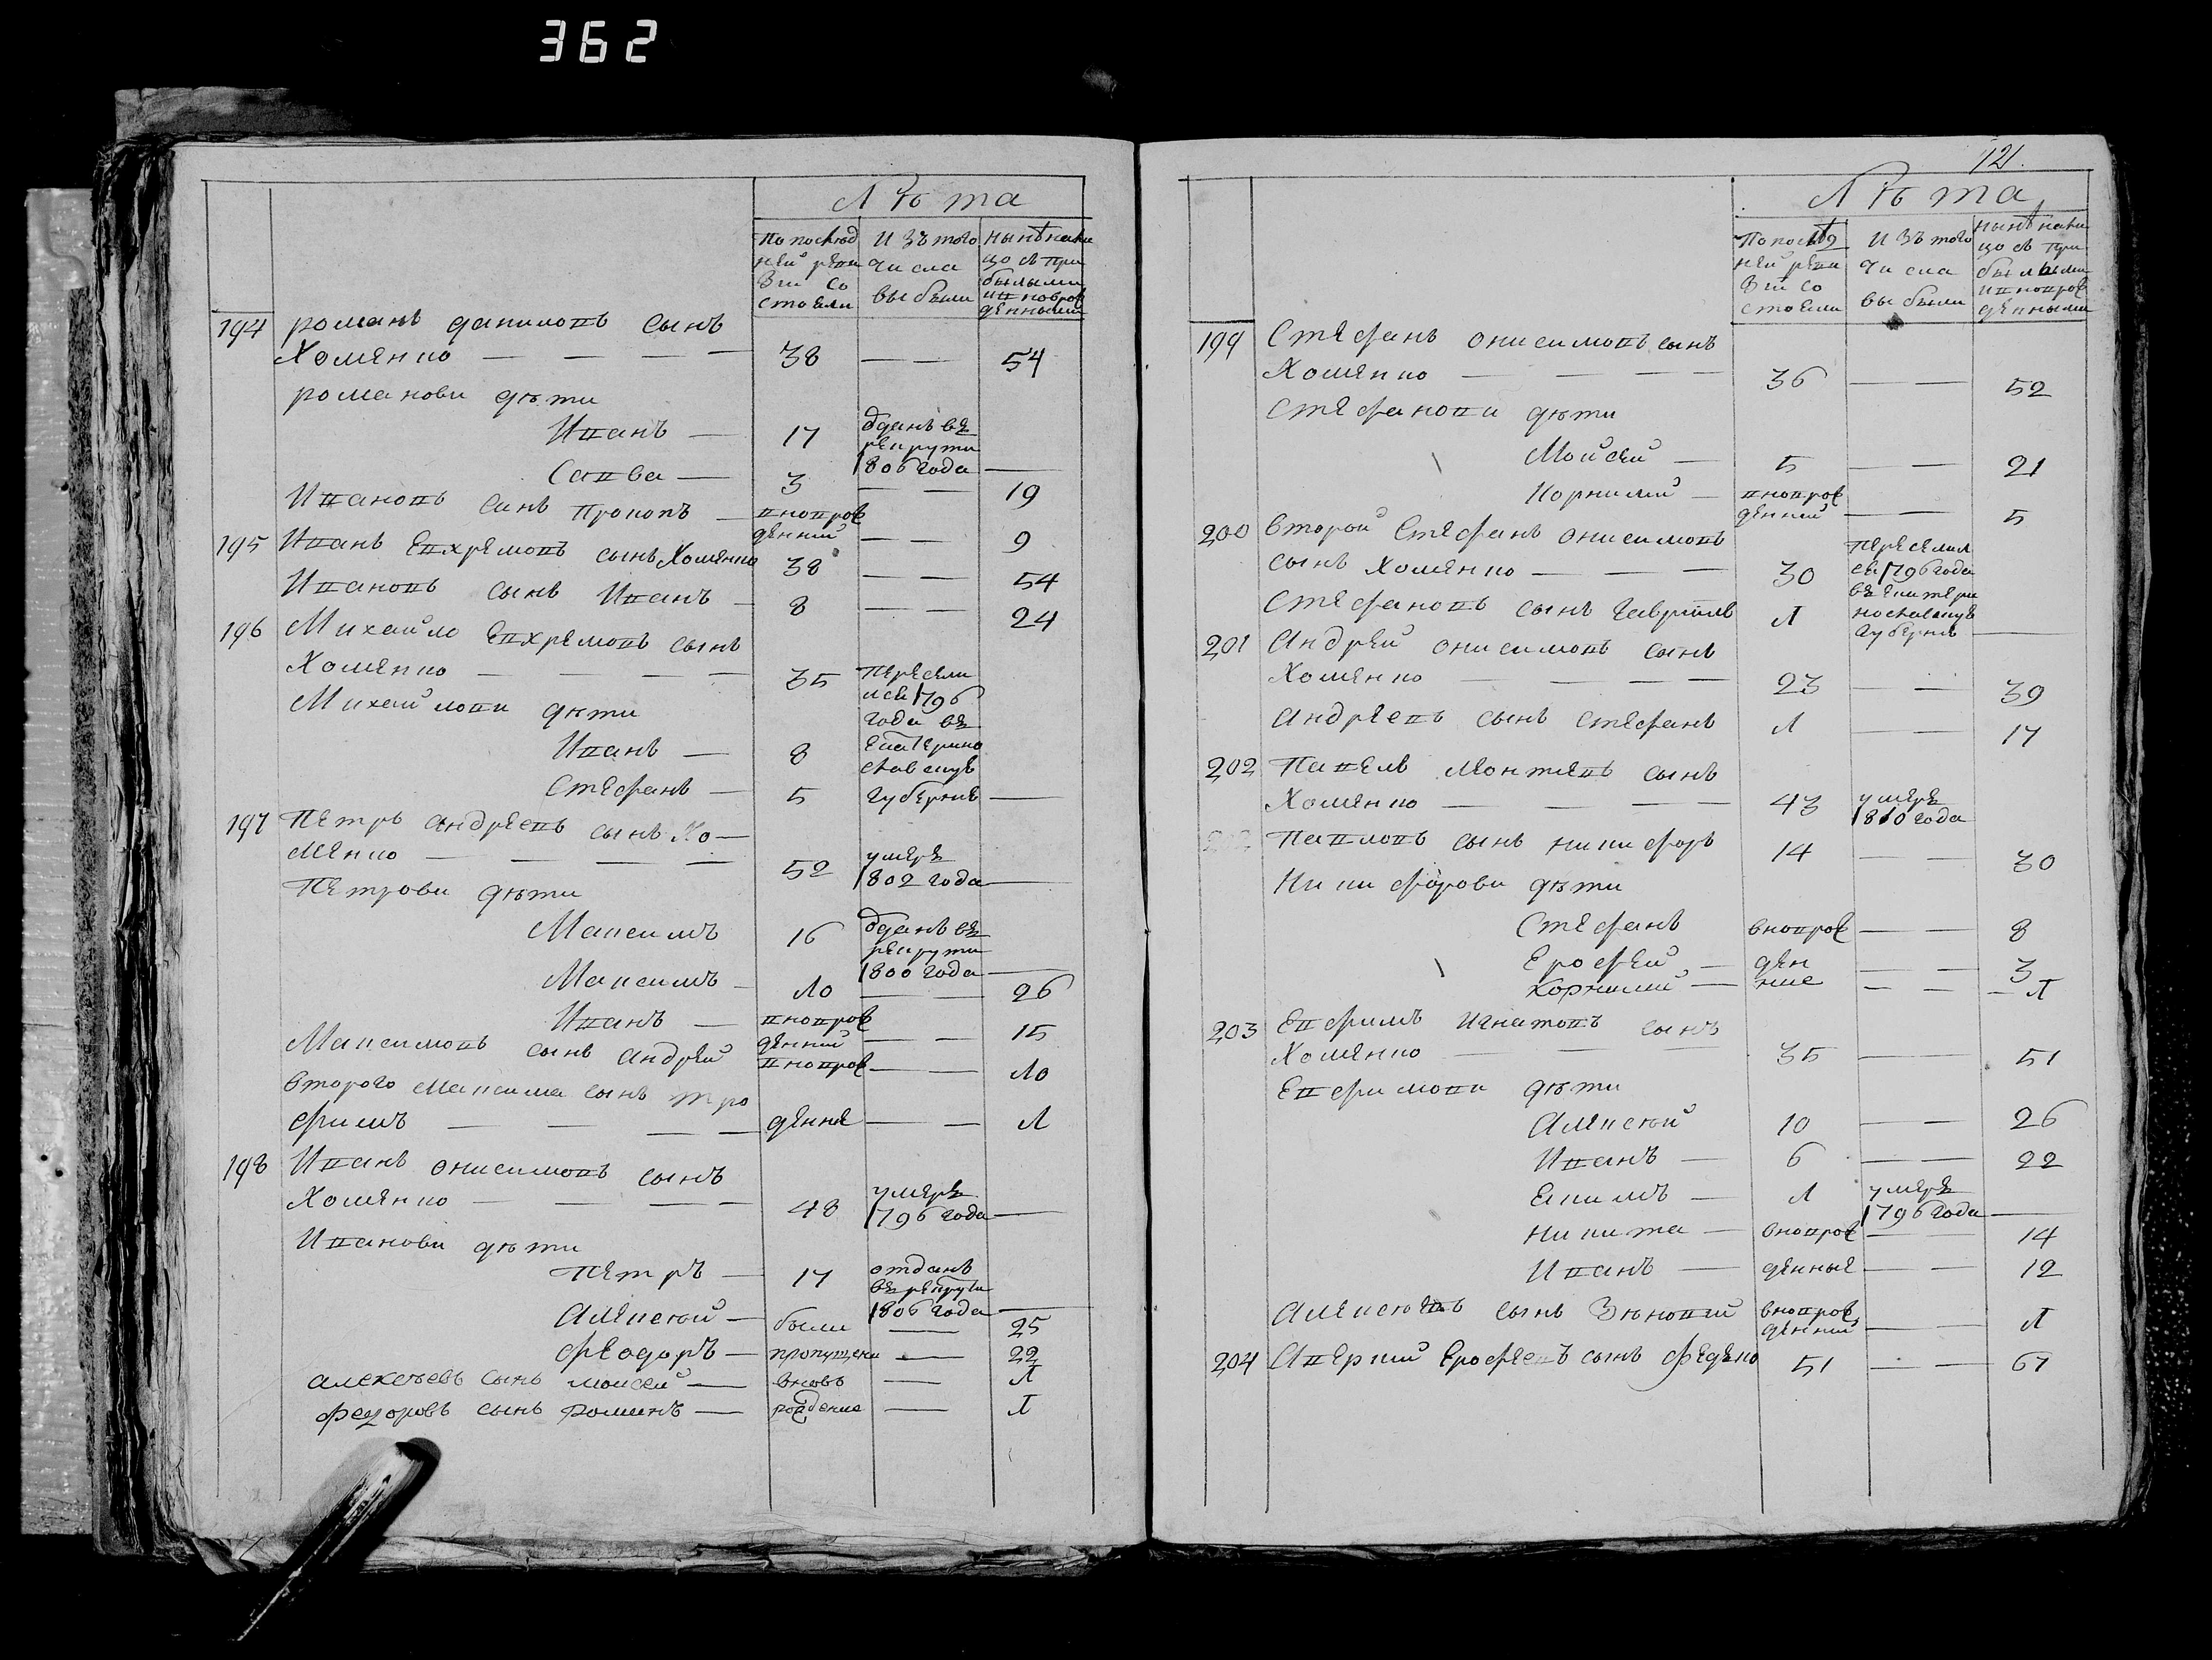 362
Лѣта
По послѣд
ней реви
зіи со
стояли
Изъ того
числа
выбыли
Нынѣ нали
цо съ при
былыми
и вновь рож
денными
194 романъ даниловъ сынъ
Хоменко — — — — 38 — — 54
романови дѣти
Иванъ — 17 ѿданъ въ
рекрути
1806 года —
Савва — 3 — — 19
Ивановъ синъ Прокопъ — вновь рож
денній — — 9
195 Иванъ Евхремовъ сынъ Хоменко 38 — — 54
Ивановъ сынъ Иванъ — 8 — — 24
196 Михайло Евхремовъ сынъ
Хоменко — — — — 35 Пересели
лси 1796
года въ
Екатерино
славскую
губернію —
Михайлови дѣти
Иванъ — 8
Стефанъ — 5
197 Петръ андреевъ сынъ Хо—
менко — — — — 52 умеръ
1802 года —
Петрови дѣти
Максимъ 16 ѿданъ въ
рекрути
1800 года —
Максимъ — 10 — — 26
Иванъ — вновь рож
денній — — 15
Максимовъ сынъ андрей вновь рож — — 10
второго максима сынъ тро
фимъ — — — — денне — — 1
198 Иванъ онисимовъ сынъ
Хоменко — — — — 48 умеръ
1796 года —
Иванови дѣти
Петръ — 17 отданъ
въ рекрути
1806 года —
Алексѣй — были — 25
Феодоръ — пропущени — 22
алексѣевъ сынъ моисей — вновь — 1
федоровъ сынъ романъ — рождение — 1
121.
Лѣта
По послѣд
ней реви
зіи со
стояли
Изъ того
числа
выбыли
Нынѣ нали
цо съ при
былыми
и вновь рож
денными
199 Стефанъ онисимовъ сынъ
Хоменко — — — — 36 — — 52
Стефанови дѣти
Мойсей — 5 — — 21
Корнилий — вновь рож
денний — — 5
200 второй Стефанъ онисимовъ
сынъ Хоменко — — — 30 Переселил
си 1796 года
въ Екатери
нославскую
губернію —
Стефановъ сынъ гаврііль 1
201 Андрей онисимовъ сынъ
Хоменко — — — — 23 — — 39
андреевъ сынъ стефанъ 1 — — 17
202 Павелъ леонтіевъ сынъ
Хоменко — — — — 43 умеръ
1810 года
Павловъ сынъ никифоръ 14 — — 30
Никифорови дѣти
Стефанъ вновь рож — — 8
Ерофей — ден — — 3
Корнилий — ние — — 1
203 Евфимъ игнатовъ сынъ
Хоменко — — — 35 — — 51
Евфимови дѣти
Алексѣй 10 — — 26
Иванъ — 6 — — 22
Екимъ — 1 умеръ
1796 года —
Никита — вновь рож — — 14
Иванъ — денные — — 12
алексѣевъ сынъ Зѣновий вновь рож
денний — — 1
204 Аверкий Ерофеевъ сынъ Феденко 51 — — 67